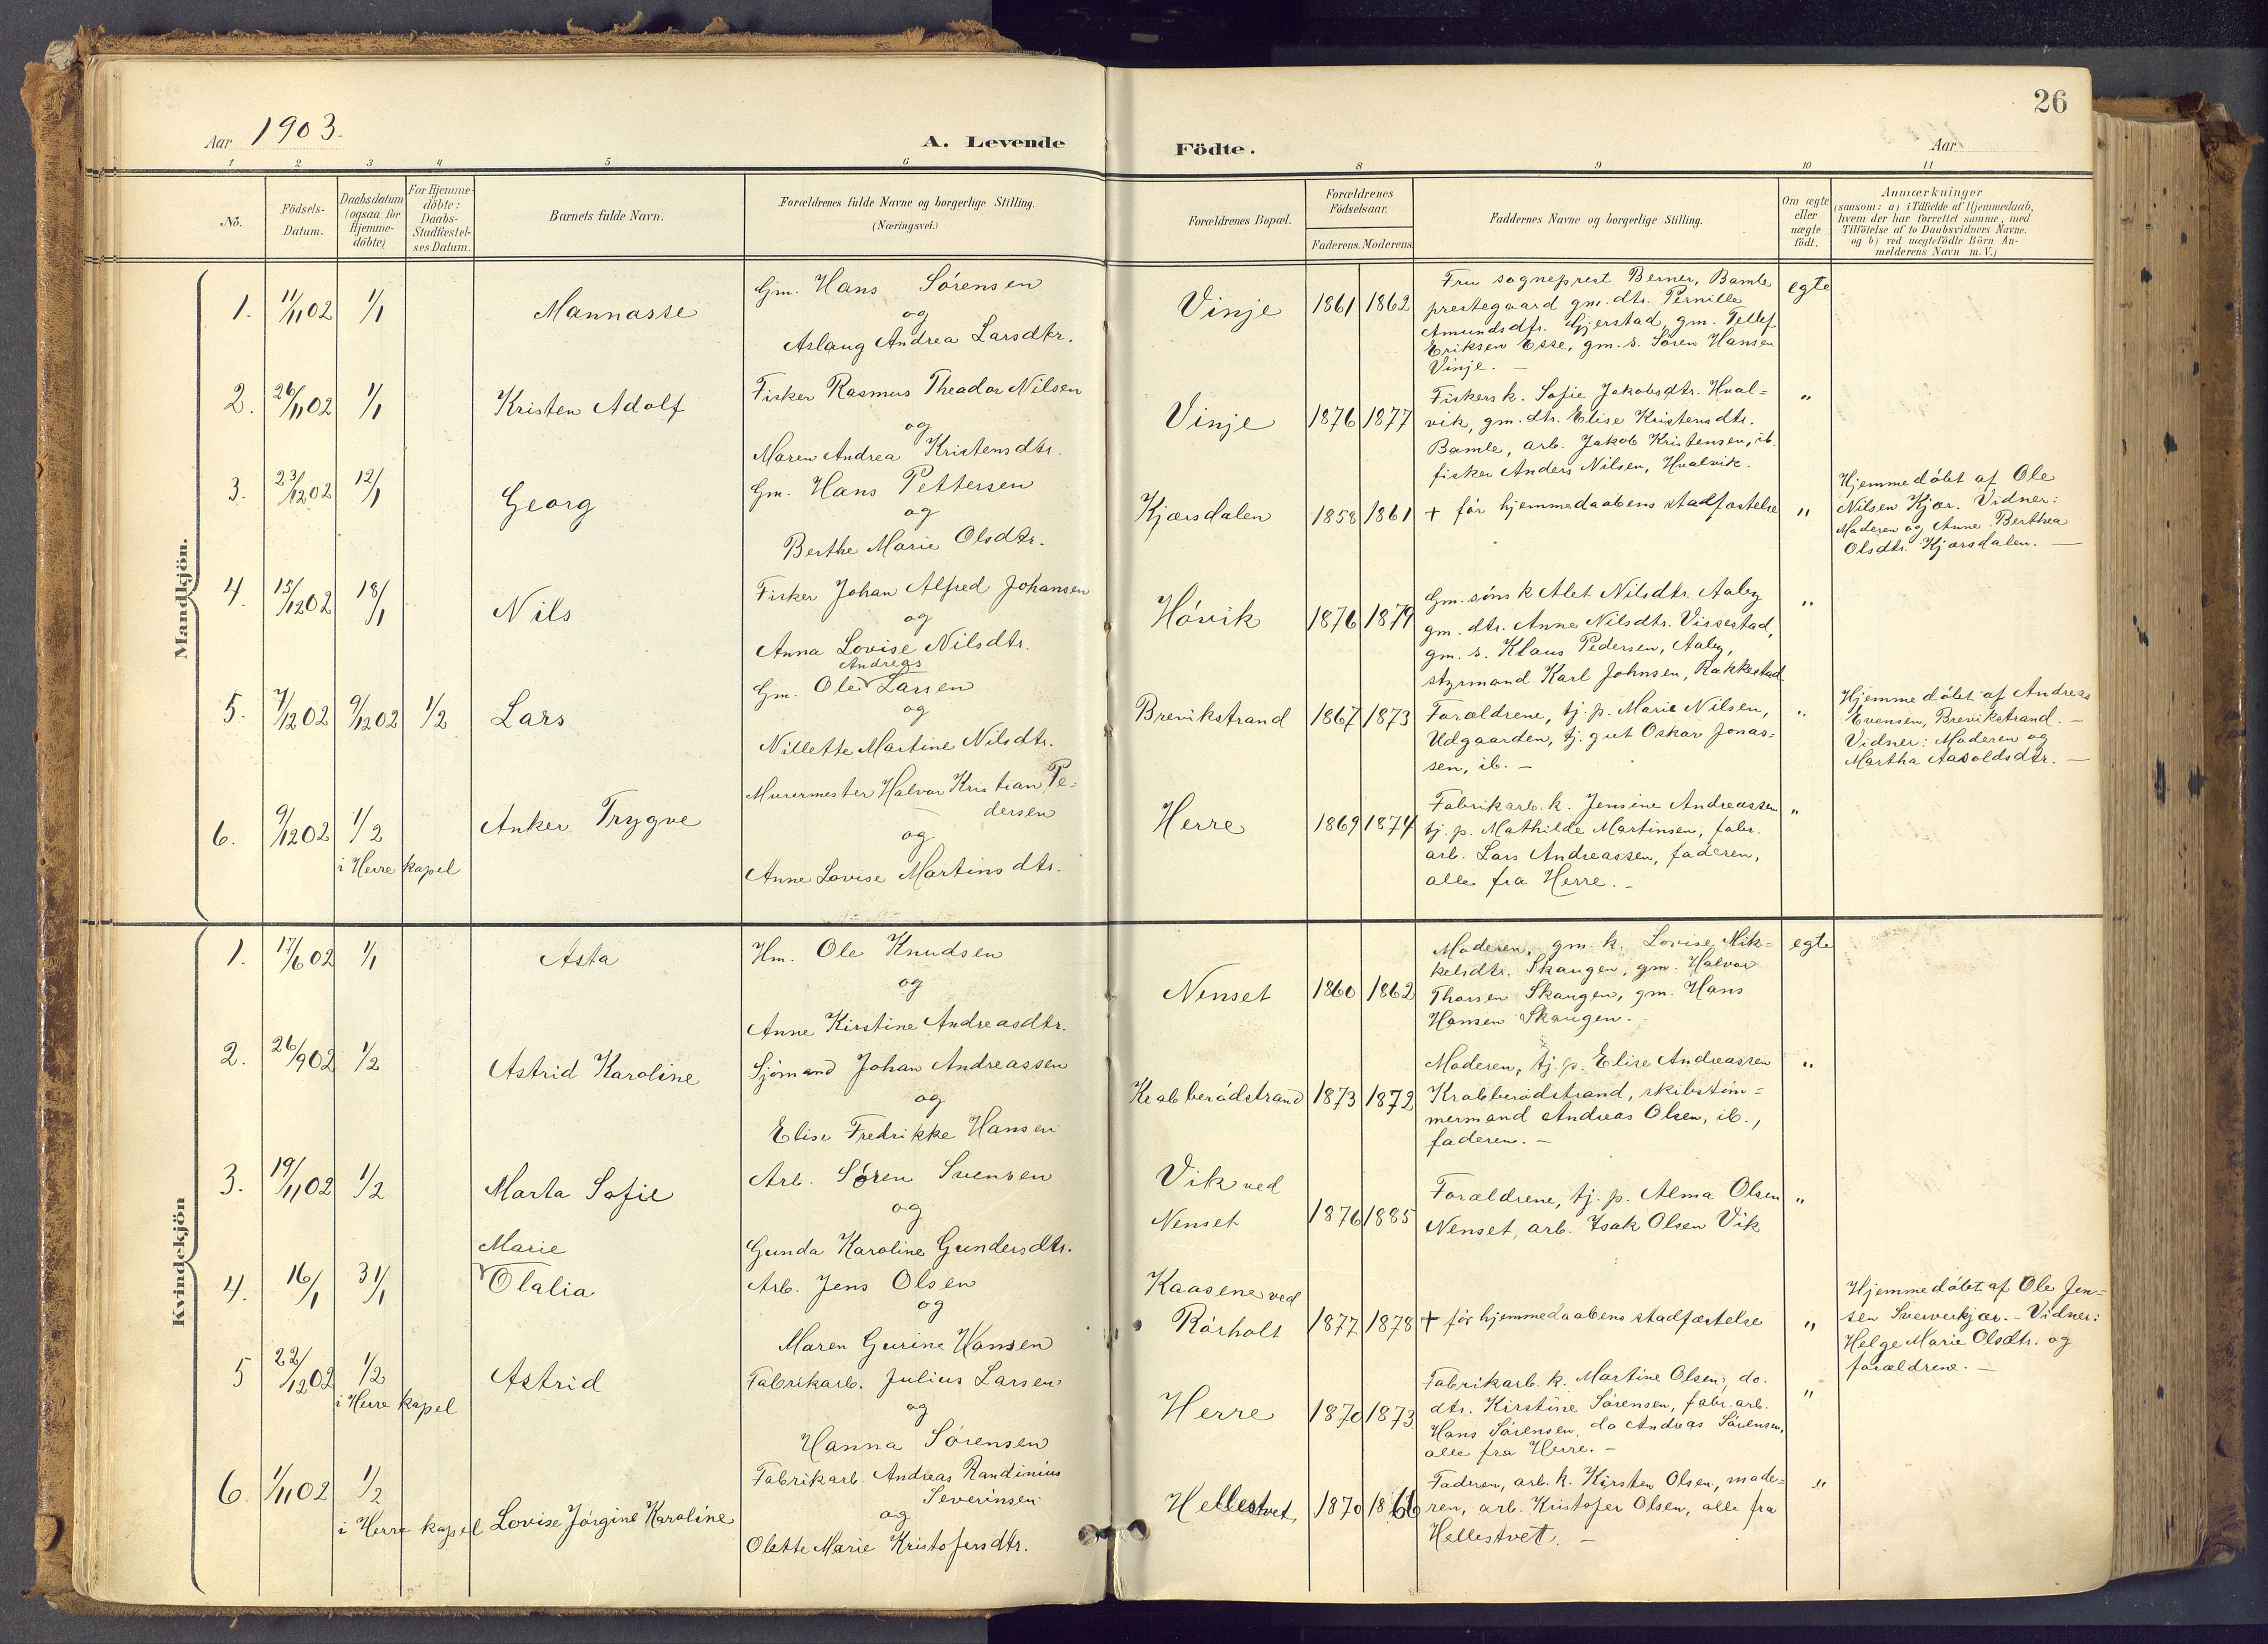 26
Aar 1903.
A. Levende
Födte.
Aar
1 2 3 4 5 6 8 9 10 11
No.
Födsels-
Datum.
Daabsdatum
(ogsaa for
Hjemme-
döbte)
For Hjemme-
döbte:
Daabs-
Stadfæstel-
ses Datum.
Barnets fulde Navn.
Forældrenes fulde Navne og borgerlige Stilling.
(Næringsvei.)
Forældrenes Bopæl.
Forældrenes
Födselsaar.
Faderens. Moderens
Faddernes Navne og borgerlige Stilling.
Om ægte
eller
uægte
födt.
Anmærkninger
(saasom: a) i Tilfælde af Hjemmedaab,
hvem der har forrettet samme, med
Tilföielse af to Daabsvidners Navne.
og b) ved uægtefödte Börn An-
melderens Navn m. V.)
Mandkjön.
1. 11/11 02 1/1 Mannasse
Gm. Hans Sörensen
og
Aslaug Andrea Larsdtr.
Vinje 1861 1862
Fru sogneprest Berner, Bamle
prestegaard gm. dtr. Pernille
Amundsdtr. Gjerstad, gm. Tellef
Eriksen Esse, gm. s. Sören Hansen
Vinje. –
egte
2. 26/11 02 1/1 Kristen Adolf
Fisker Rasmus Theodor Nilsen
og
Maren Andrea Kristensdtr.
Vinje 1876 1877
Fiskers k. Sofie Jakobsdtr. Hval=
vik, gm. dtr. Elise Kristensdtr.
Bamle, arb. Jakob Kristensen, ib.
fisker Anders Nilsen, Hvalvik.
"
3. 23/12 02 12/1 Georg
Gm. Hans Pettersen
og
Berthe Marie Olsdtr.
Kjærsdalen 1858 1861
+ för hjemmedaabens stadfæstelse
"
Hjemmedöbt af Ole
Nilsen Kjær. Vidner:
Moderen og Anne Berthea
Olsdtr. Kjærsdalen. –
4. 15/12 02 18/1 Nils
Fisker Johan Alfred Johansen
og
Anna Lovise Nilsdtr.
Hövik 1876 1879
Gm. söns k Alet Nilsdtr. Aaby
gm. dtr. Anne Nilsdtr. Vissestad,
gm. s. Klaus Pedersen, Aaby,
styrmand Karl Johnsen, Rakkestad
"
5. 7/12 02 9/12 02 1/2 Lars
Andreas
Gm. Ole Larsen
og
Nillette Martine Nilsdtr.
Brevikstrand 1867 1873
Forældrene, tj. p. Marie Nilsen,
Udgaarden, tj. gut Oskar Jonas=
sen, ib. –
"
Hjemmedöbt af Andreas
Evensen, Brevikstrand. –
Vidner: Moderen og
Martha Aasoldsdtr. –
6. 9/12 02 1/2 Anker Trygve
i Herre kapel
Murermester Halvor Kristian Pe=
dersen
og
Anne Lovise Martinsdtr.
Herre 1869 1874
Fabrikarb. k. Jensine Andreassen
tj. p. Mathilde Martinsen, fabr.
arb. Lars Andreassen, faderen,
alle fra Herre. –
"
Kvindekjön
1. 17/6 02 1/1 Asta
Hm. Ole Knudsen
og
Anne Kirstine Andreasdtr.
Nenset 1860 1862
Moderen, gm. k. Lovise Mik=
kelsdtr. Skaugen, gm. Halvor
Thorsen Skaugen, gm. Hans
Hansen Skaugen.
egte
2. 26/9 02 1/2 Astrid Karoline
Sjömand Johan Andreassen
og
Elise Fredrikke Hansen
Krabberödstrand 1873 1872
Moderen, tj. p. Elise Andreassen
Krabberödstrand, skibstöm=
mermand Andreas Olsen, ib.,
faderen. –
"
3. 19/11 02 1/2 Marta Sofie
Arb. Sören Svensen
og
Gunda Karoline Gundersdtr.
Vik ved
Nenset 1876 1885
Forældrene, tj. p. Alma Olsen
Nenset, arb. Isak Olsen Vik
"
Marie
4. 16/1 31/1 Olalia
Arb. Jens Olsen
og
Maren Gurine Hansen
Kaasene ved
Rörholt 1877 1878
+ för hjemmedaabens stadfæstelse
"
Hjemmedöbt af Ole Jen=
sen . – Vidner:
Helge Marie Olsdtr. og
forældrene. –
5 22/12 02 1/2 Astrid
i Herre kapel
Fabrikarb. Julius Larsen
og
Hanna Sörensen
Herre 1870 1873
Fabrikarb. k. Martine Olsen, do.
dtr. Kirstine Sörensen, fabr. arb.
Hans Sörensen, do Andreas Sörensen,
alle fra Herre. –
"
6 1/11 02 1/2 Lovise Jörgine Karoline
i Herre kapel
Fabrikarb. Andreas Randinius
Severinsen
og
Olette Marie Kristofersdtr.
Hellestvet 1870 1866
Faderen, arb. k. Kirsten Olsen, mode=
ren, arb. Kristofer Olsen, alle fra
Hellestvet. –
"